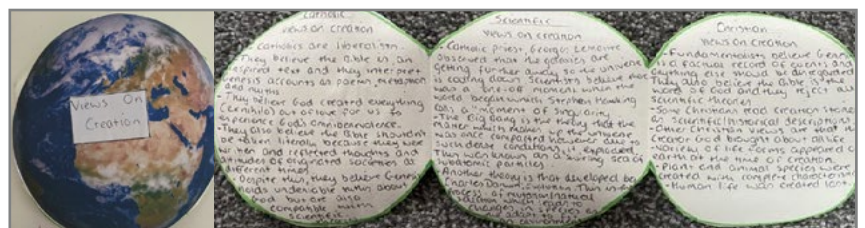 Views On
Creation
Catholic
views on creation
- Catholics are liberalism.
- They believe the Bible is an
inspired text and they interpret
Genesis accounts as poems, metaphors
and myths
- They believe God created everything
out of love for us to
experience God's omnibenevolence.
- They also believe the Bible shouldn't
be taken literally because they were
written and reflected thoughts and
attitudes of societies at
different times
- Despite this, they believe Genesis
holds undeniable truths about
God but are also
compatible with
scientific
Scientific
views on creation
- Catholic priest, Georges Lemaitre
observed that the galaxies are
getting further away so the universe
is Scientists believe there
was a one-off moment when the
world began which Stephen Hawking
a "moment of singularity"
- The Big Bang is the theory that the
matter which makes up the universe
was once compacted however due to
such dense conditions, it exploded.
This was known as a swirling sea of
subatomic particles.
- Another theory is that developed by
Charles Darwin, Evolution. This is the
process of mutation/natural
selection which leads to
changes in species as
adapt to
environment
Christian
views on creation
- Fundamentalists believe Genesis
is a factual record of events and
anything else should be disregarded
They also believe the Bible is the
word of God and they reject all
scientific theories
- Some Christians read creation stories
as scientific/historical descriptions.
- Other Christian views are that the
creator God brought about all life
varieties of life forms appeared on
earth at the time of creation.
- Plant and animal species were
created with complete characteristics
- Human life was created last.